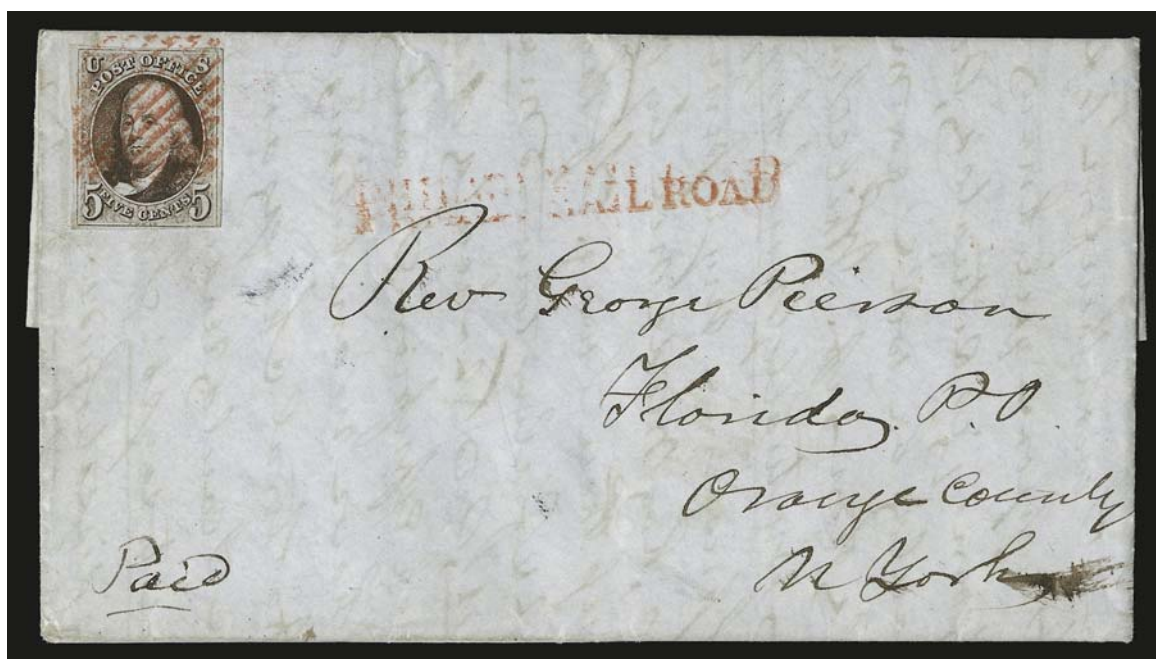 U S
POST OFFICE
5 FIVE CENTS 5
RAIL ROAD
Rev George Pierson
Florida P.O.
Orange County
N York
Paid